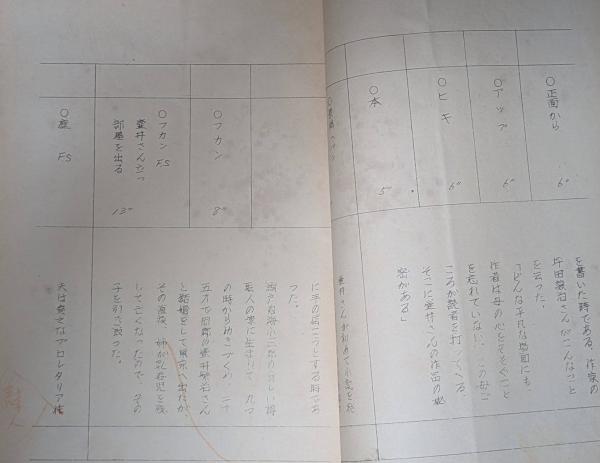 ○正面から 6"
○アップ 6"
○ヒキ 6"
○本 5"
を書いた時である。作家の
さんがこんなこと
を云った。
「どんな平凡な場面にも、
作者は母の心をそそぐこと
を忘れていない、この母ご
ころが読者を打
そこに壷井さんの作品の秘
密がある」
壷井さんが初めて小説を発
○フカン 8"
○フカン FS
壷井さん立つ
部屋を出る 13"
○庭 FS
に手の届こうとする時であ
った。
の貧しい樽
職人の家に生まれて、九つ
の時から
五才で同郷の壷井繁治さん
と結婚をして東京へ出たが
その直後、姉が乳呑児を残
して亡くなったので、その
子を引き取った。
夫は プロレタリア
詩人